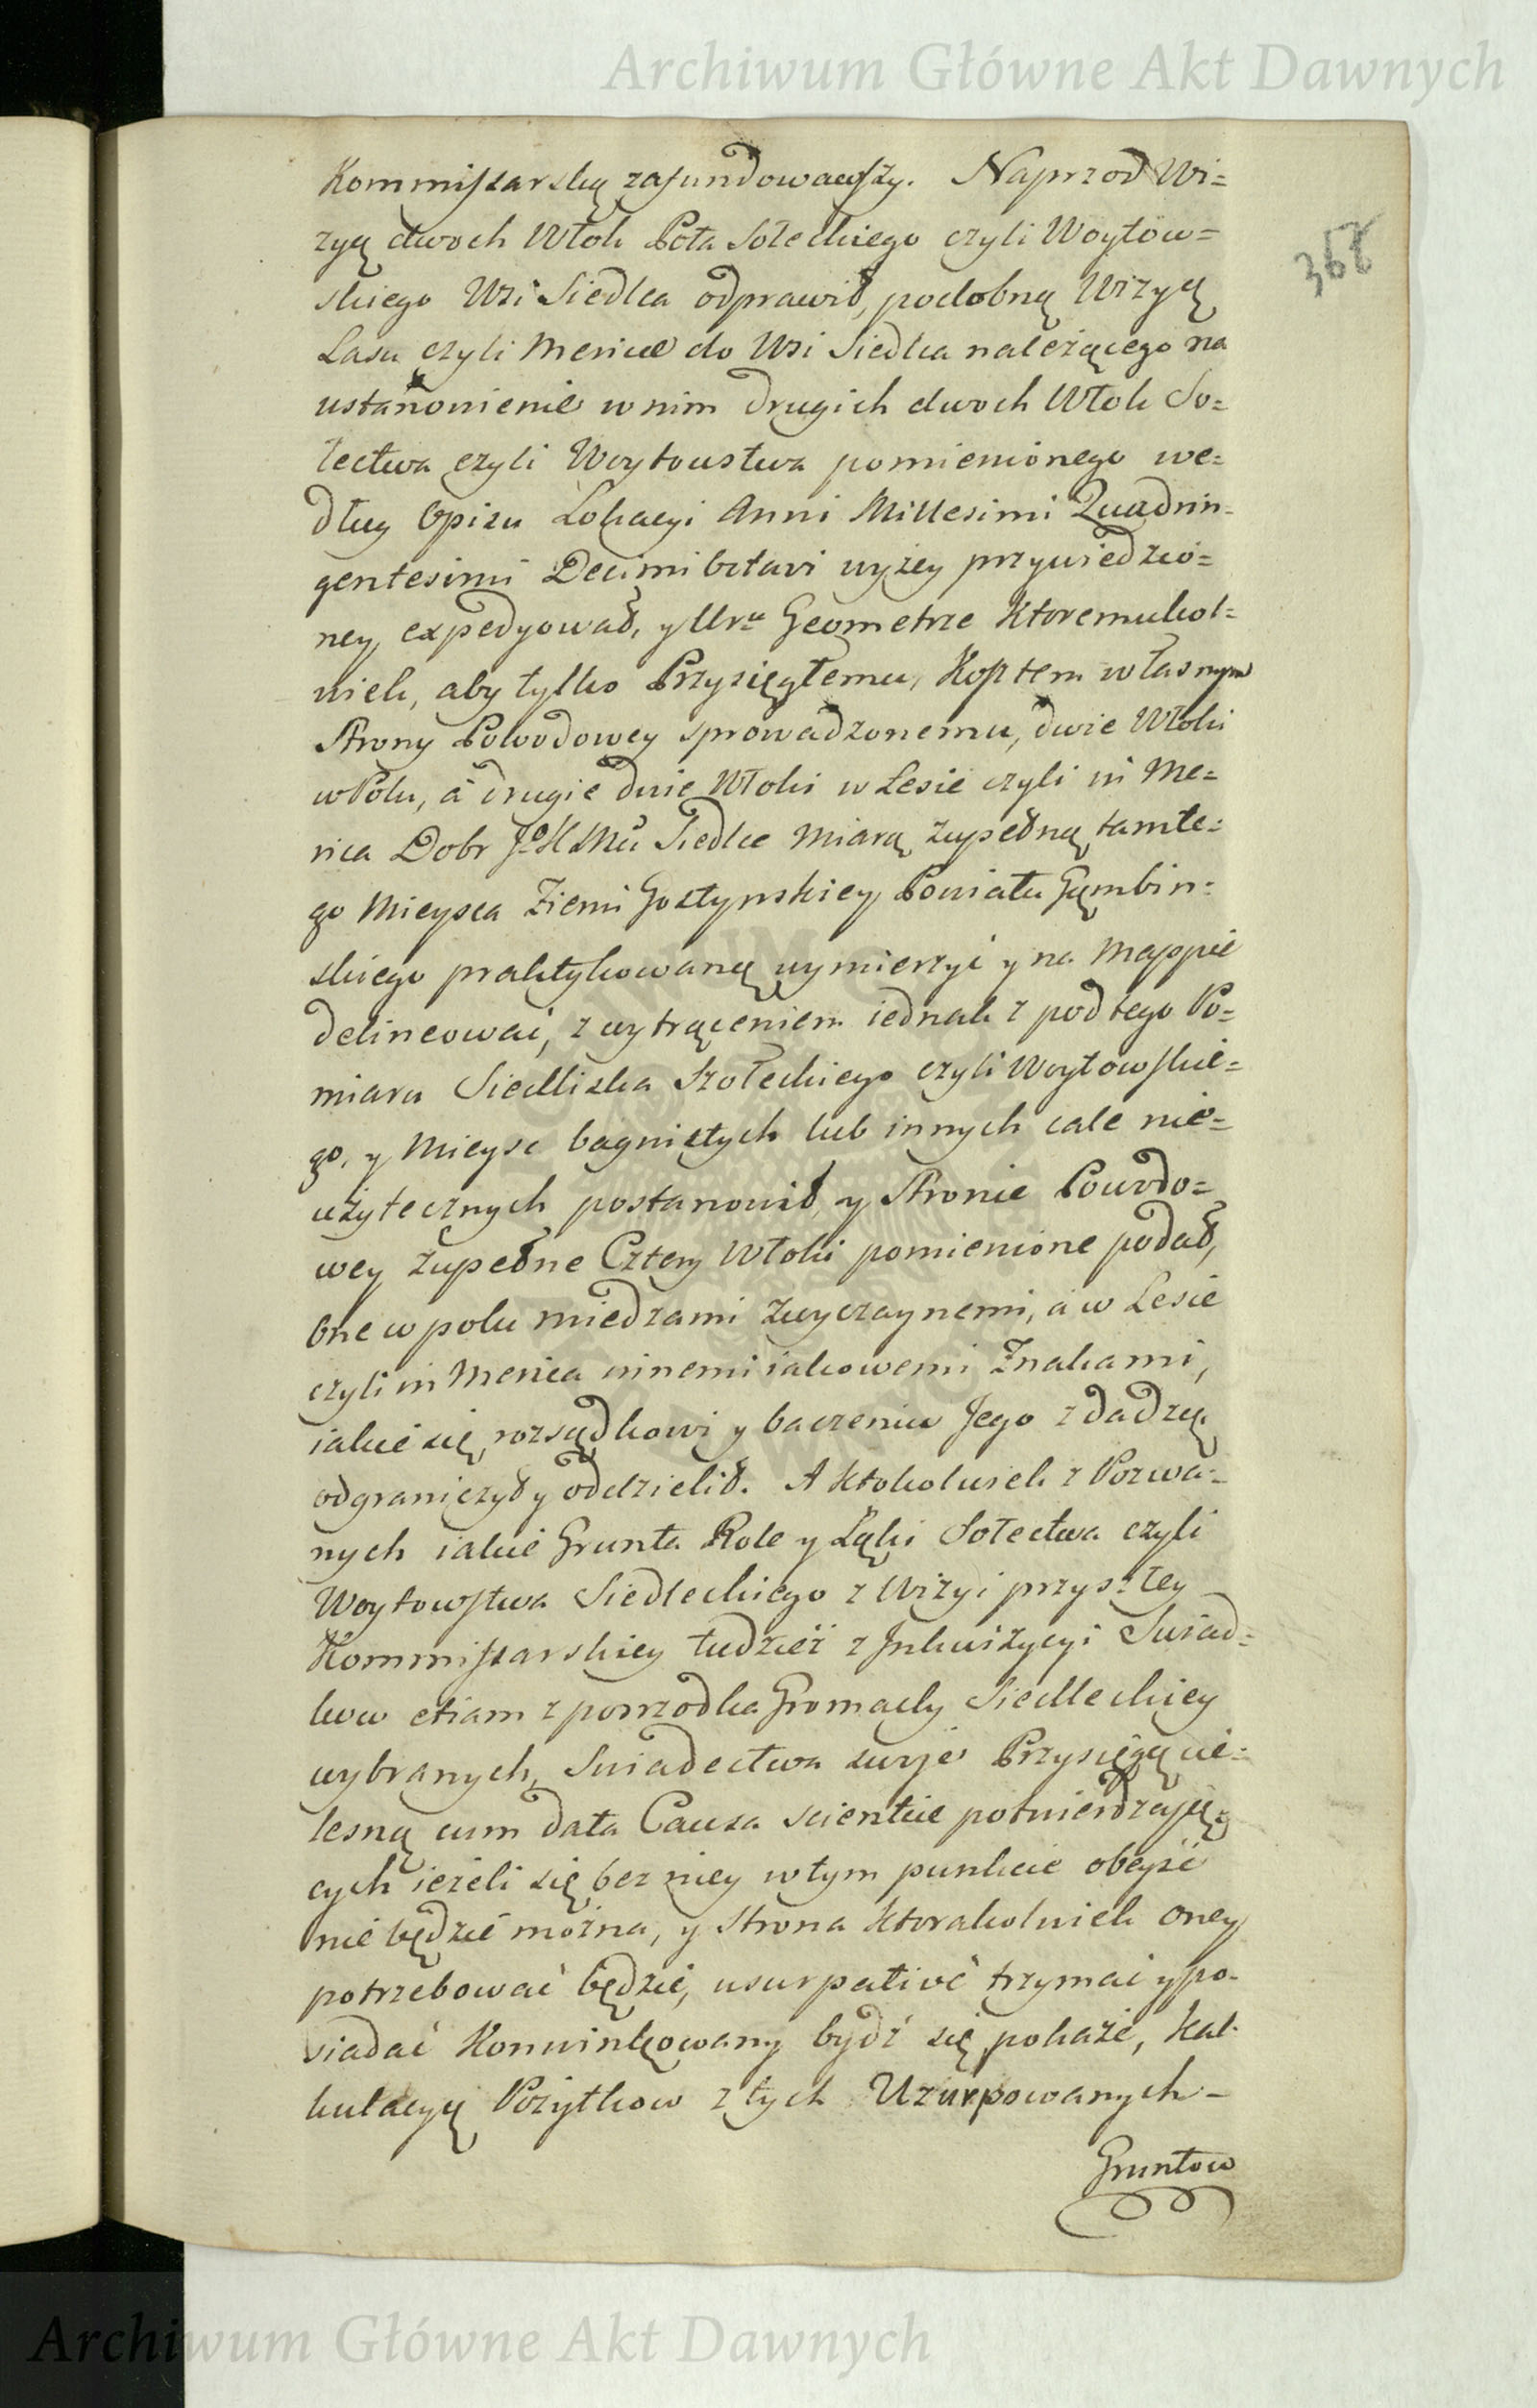 Archiwum Główne Akt Dawnych
Kommissarską zafundowawszy. Naprzod Wi=
zyą dwoch Włok Pola Sołeckiego czyli Woytow=
skiego Wsi Siedlca odprawił, podobną Wizyą
Lasu czyli Mericæ do Wsi Siedlca należącego na
ustanowienie w nim drugich dwoch Włok So=
łectwa czyli Woytowstwa pomienionego we=
dług Opisu Lokacyi Anni Millesimi Quadrin=
gentesimi Decimi Octavi wyżey przywiedzio=
ney, expedyował, y Uru Geometrze ktoremukol=
wiek, aby tylko Przysięgłemu, Kosztem własnym
Strony Powodowey sprowadzonemu, dwie Włoki
w Polu, á drugie dwie Włoki w Lesie czyli in Me=
rica Dobr JKMci Siedlce miarą zupełną tamte=
go Mieysca Ziemi Gostynskiey Powiatu Gąmbin=
skiego praktykowaną wymierzyć y na Mappie
delineować, z wytrąceniem iednak z pod tego Po=
miaru Siedliska Szołeckiego czyli Woytowskie=
go, y Mieysc bagnistych lub innych cale nie=
użytecznych postanowił, y Stronie Powodo=
wey zupełne Cztery Włoki pomienione podał,
One w polu miedzami zwyczaynemi, á w Lesie
czyli in Merica innemi iakowemi Znakami,
iakie się rozsądkowi y baczeniu Jego zdadzą
odgraniczył y oddzielił. A ktokolwiek z Pozwa=
nych iakie Grunta Role y Łąki Sołectwa czyli
Woytowstwa Siedleckiego z Wizyi przyszłey
Kommissarskiey tudzież z Inkwizycyi Swiad=
kow etiam z posrzodka Gromady Siedleckiey
wybranych, Swiadectwa swoje Przysięgą cie=
lesną cum data Causa scientiæ potwierdzają=
cych ieżeli się bez niey w tym punkcie obeyść
nie będzie można, y Strona ktorakolwiek oney
potrzebować będzie, usurpativé trzymać y po=
siadać Konwinkowany bydź się pokaże, Kal=
kulacyą Pożytkow z tych Uzurpowanych
Gruntow
368
Archiwum Główne Akt Dawnych